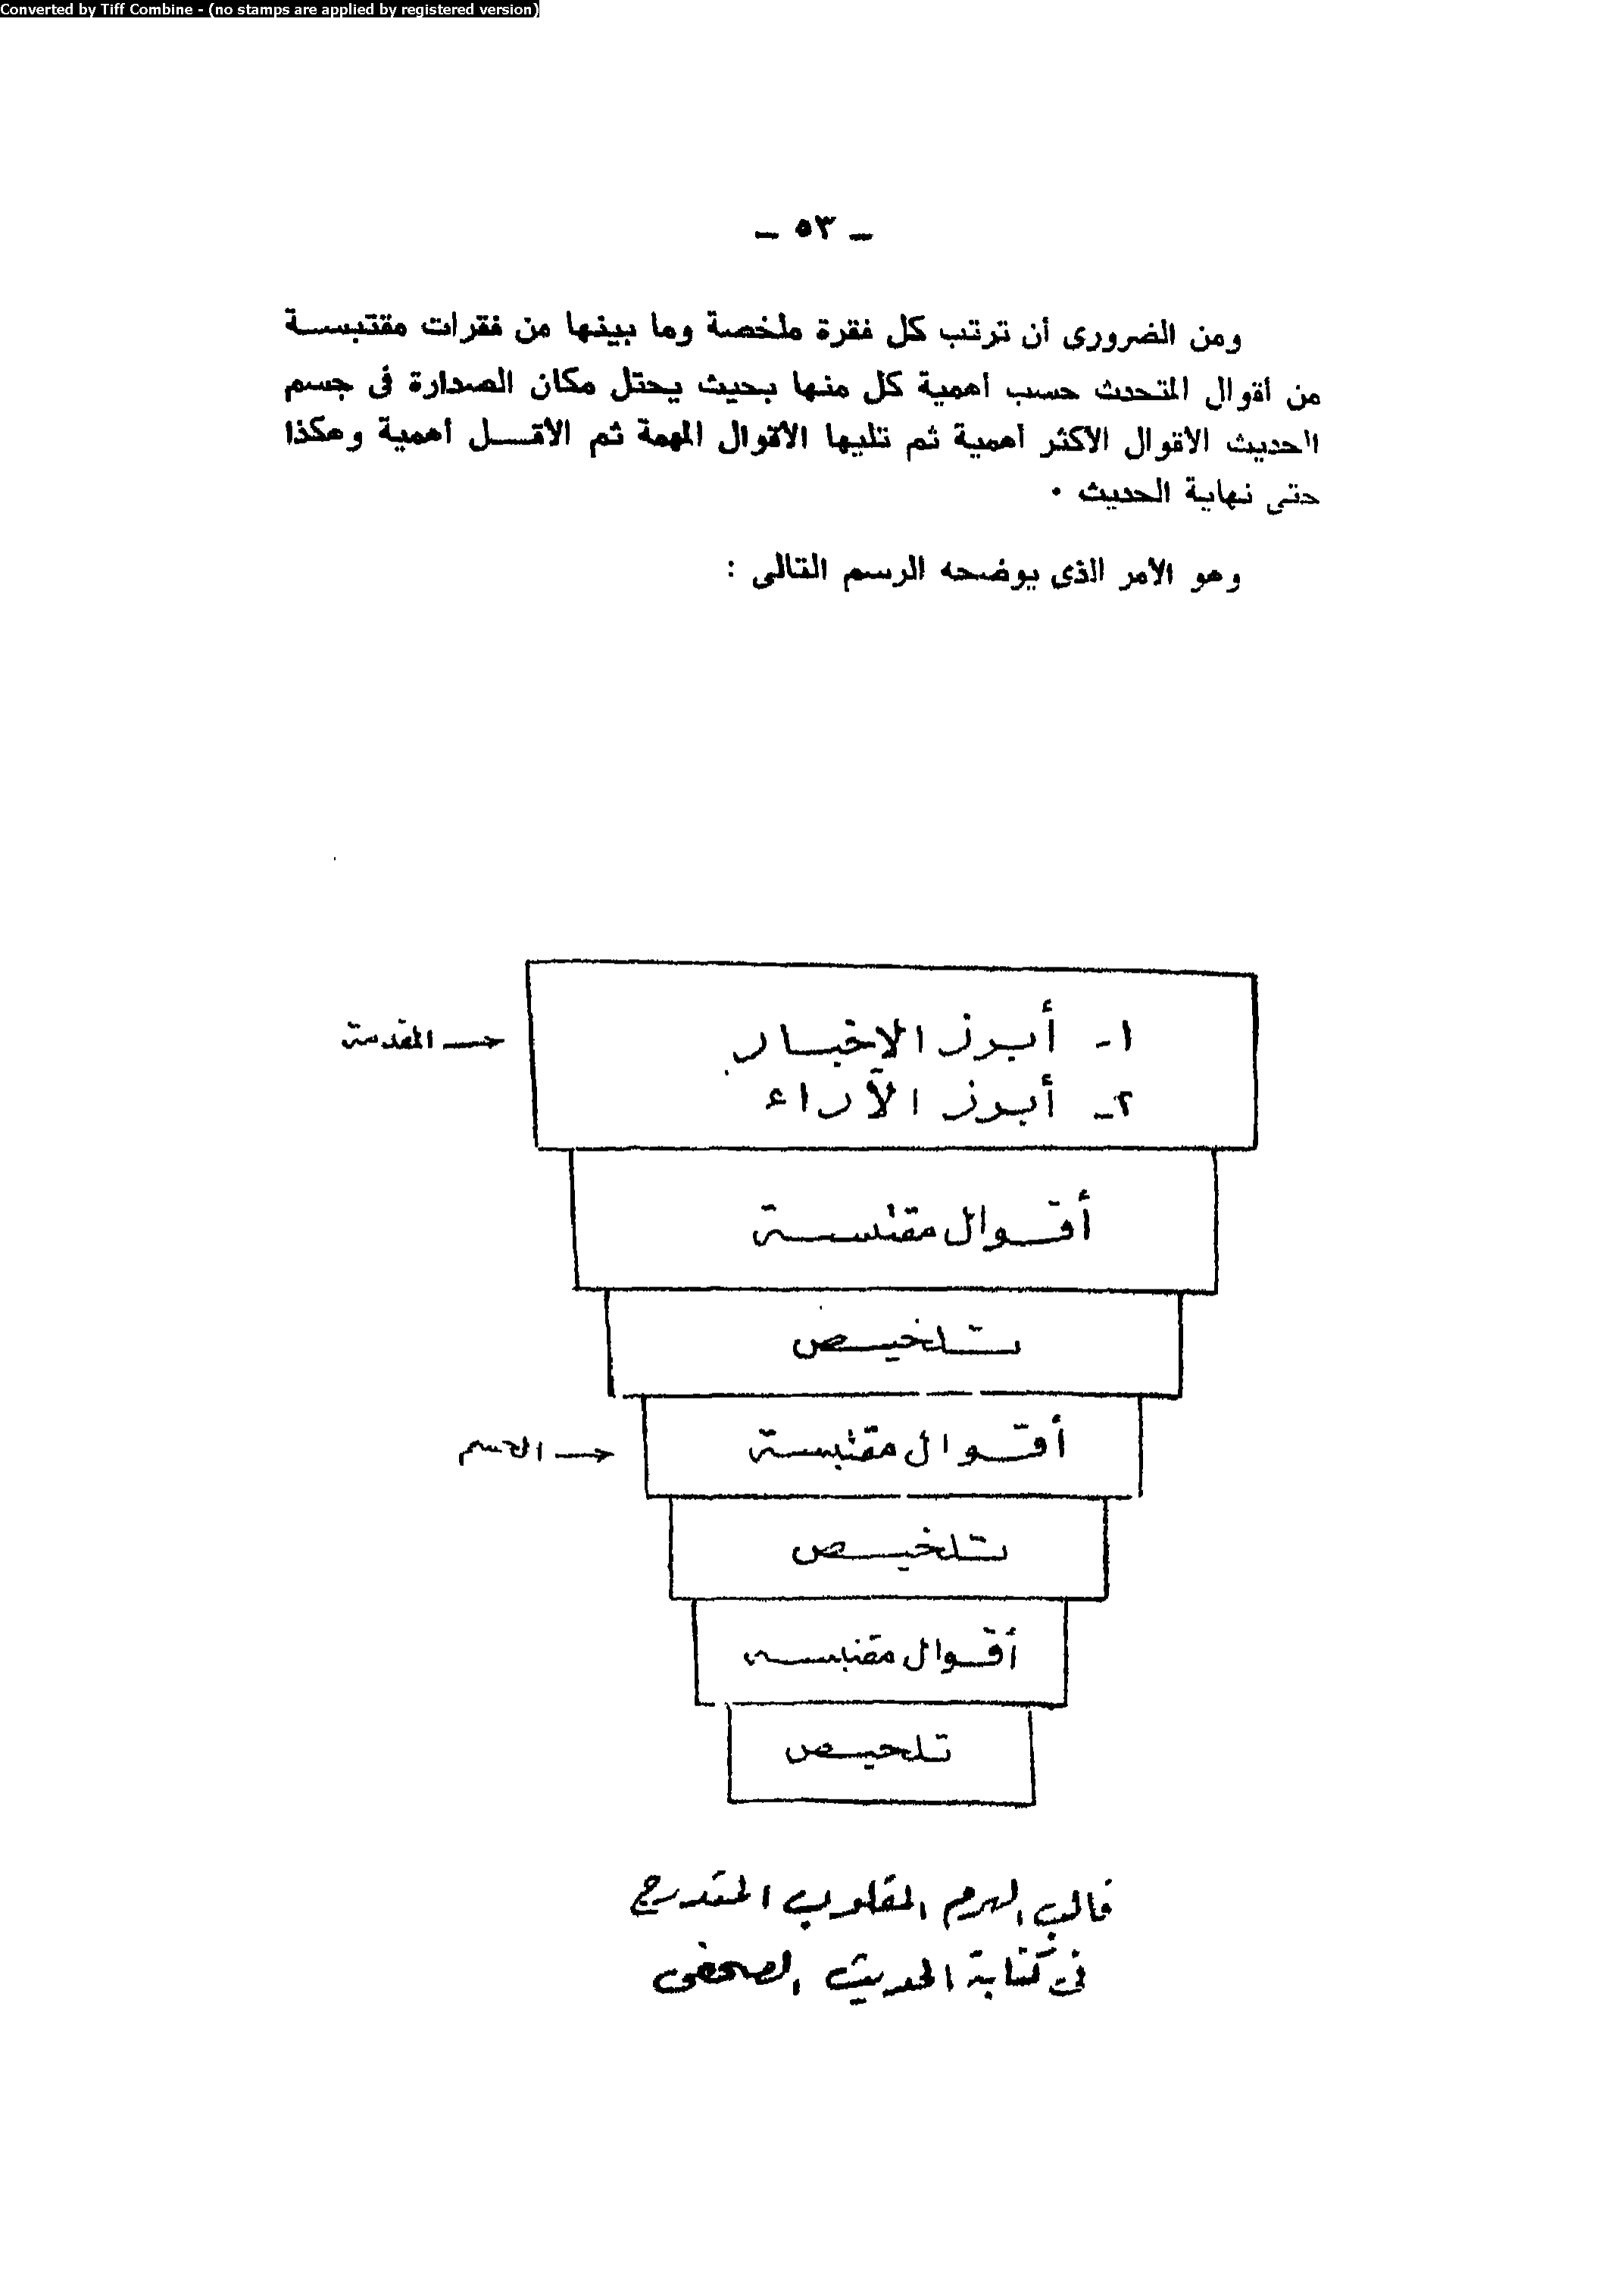 Converted by Tiff Combine - (no stamps are applied by registered version)
ـ ٥٣ ـ
ومن الضرورى أن ترتب كل فقرة ملخصة وما بينها من فقرات مقتبسـة
من أقوال المتحدث حسب أهمية كل منها بحيث يحتل مكان الصدارة فى جسم
الحديث الأقوال الأكثر أهمية ثم تليها الأقوال المهمة ثم الأقـل أهمية وهكذا
حتى نهاية الحديث ٠
وهو الأمر الذى يوضحه الرسم التالى :
١ـ أبرز الاخبار
المقدمة
٢ـ أبرز الآراء
أقوال مقتبسة
تلخيص
أقوال مقتبسة
الجسم
تلخيص
أقوال مقتبسة
تلخيص
قالب الهرم المقلوب المتدرج
فى كتابة الحديث الصحفى